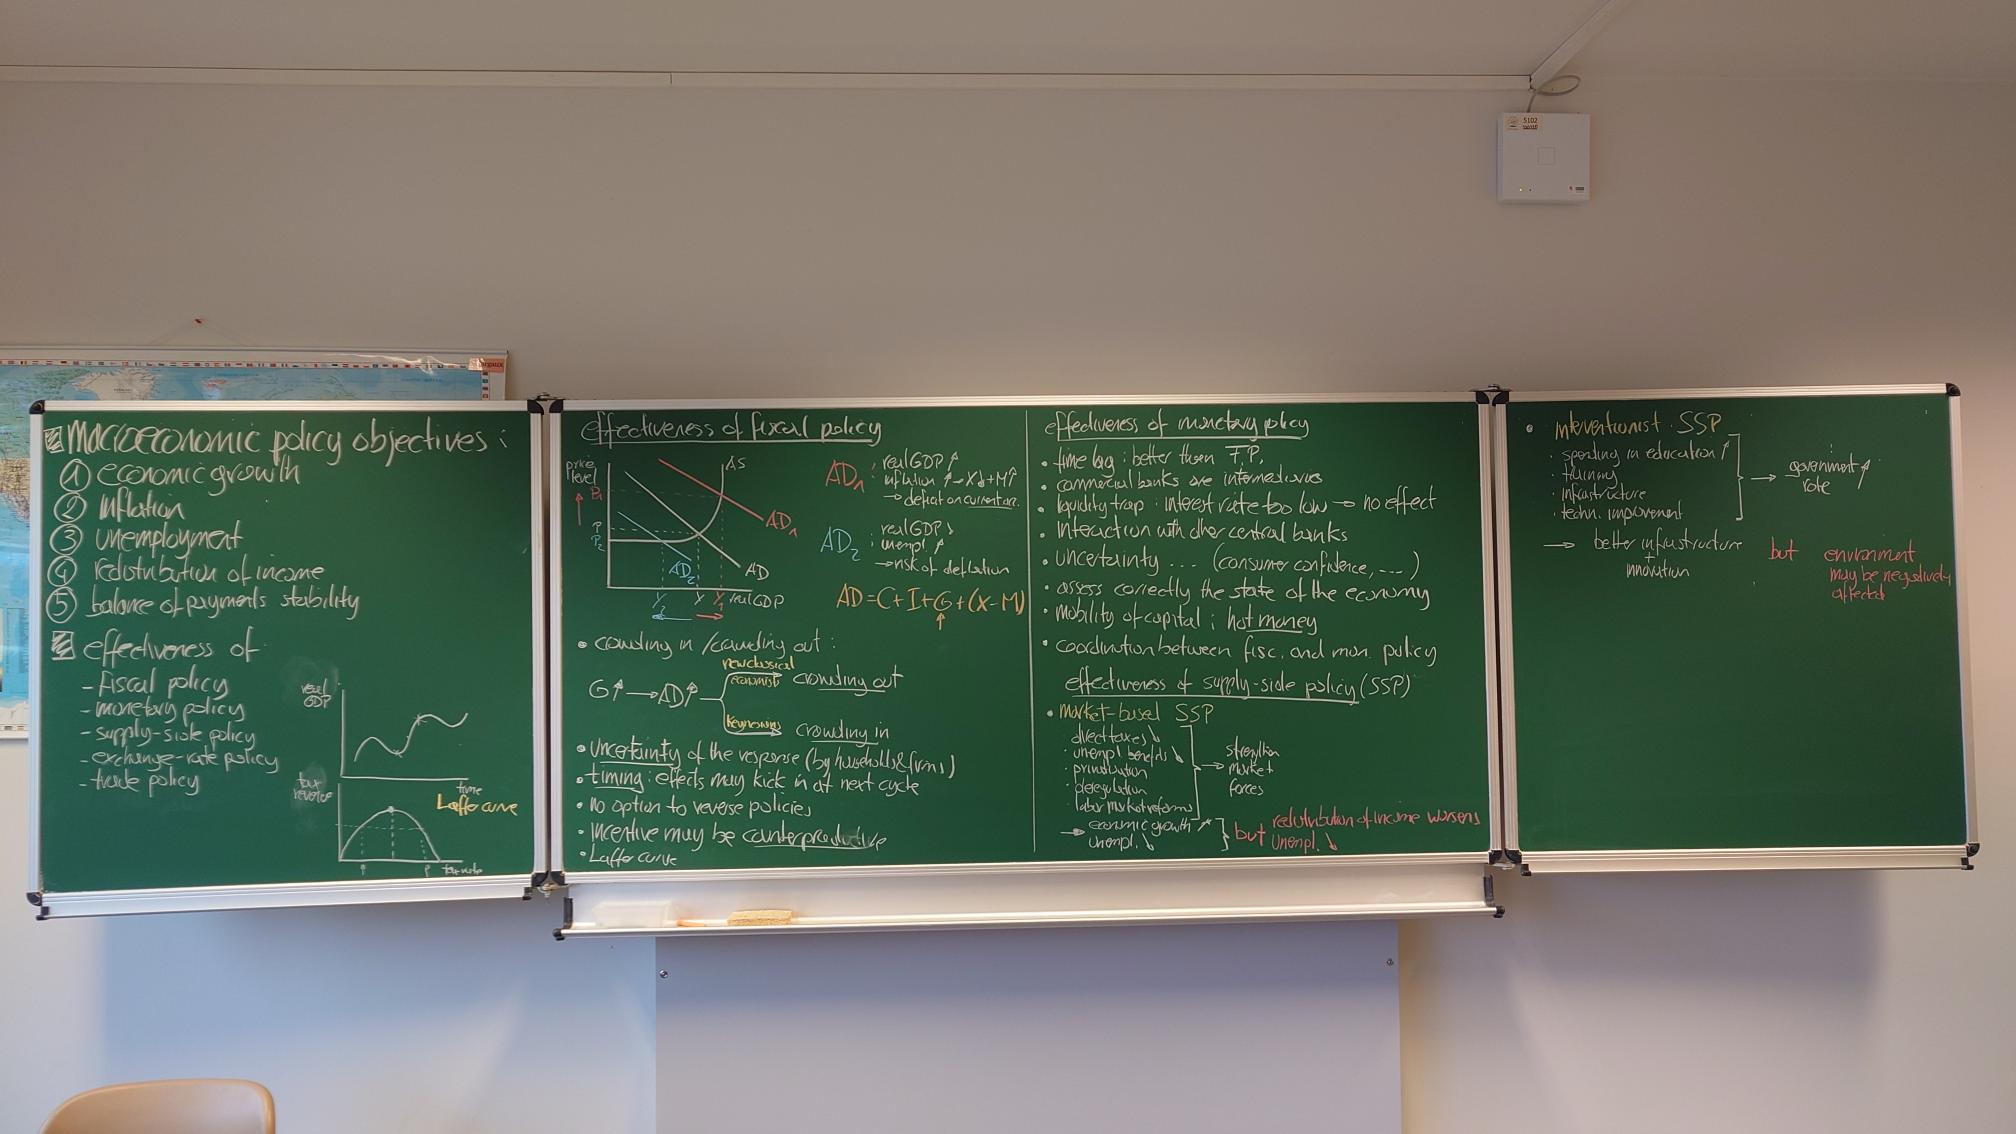 Macroeconomic policy objectives:
① economic growth
② inflation
③ unemployment
④ redistribution of income
⑤ balance of payments stability
effectiveness of
- fiscal policy
- monetary policy
- supply-side policy
- exchange-rate policy
- trade policy
real
GDP
time
tax
revenue
Laffer curve
tax rate
effectiveness of fiscal policy
price
level
P1
P
P2
AS
AD1
AD
AD2
Y2
Y
Y1
real GDP
AD1: real GDP ↑
inflation ↑ → X↓ + M↑
→ deficit on current acc.
AD2: real GDP ↓
unempl. ↑
→ risk of deflation
AD = C + I + G + (X - M)
↑
• crowding in / crowding out:
G↑ → AD↑
new classical
economists
crowding out
Keynesians
crowding in
• uncertainty of the response (by households & firms)
• timing: effects may kick in at next cycle
• no option to reverse policies
• incentive may be counterproductive
• Laffer curve
effectiveness of monetary policy
• time lag: better than F.P.
• commercial banks are intermediaries
• liquidity trap: interest rate too low → no effect
• interaction with other central banks
• uncertainty ... (consumer confidence, ...)
• assess correctly the state of the economy
• mobility of capital: hot money
• coordination between fisc. and mon. policy
effectiveness of supply-side policy (SSP)
• market-based SSP
direct taxes ↓
· unempl. benefits ↓
· privatisation
· deregulation
· labor market reforms
→ strengthen
market
forces
→ economic growth ↗
unempl. ↓
but redistribution of income worsens
unempl. ↓
• interventionist SSP
· spending in education ↑
· training
· infrastructure
· techn. improvement
→ government ↑
rote
→ better infrastructure
+
innovation
but environment
may be negatively
affected
5102